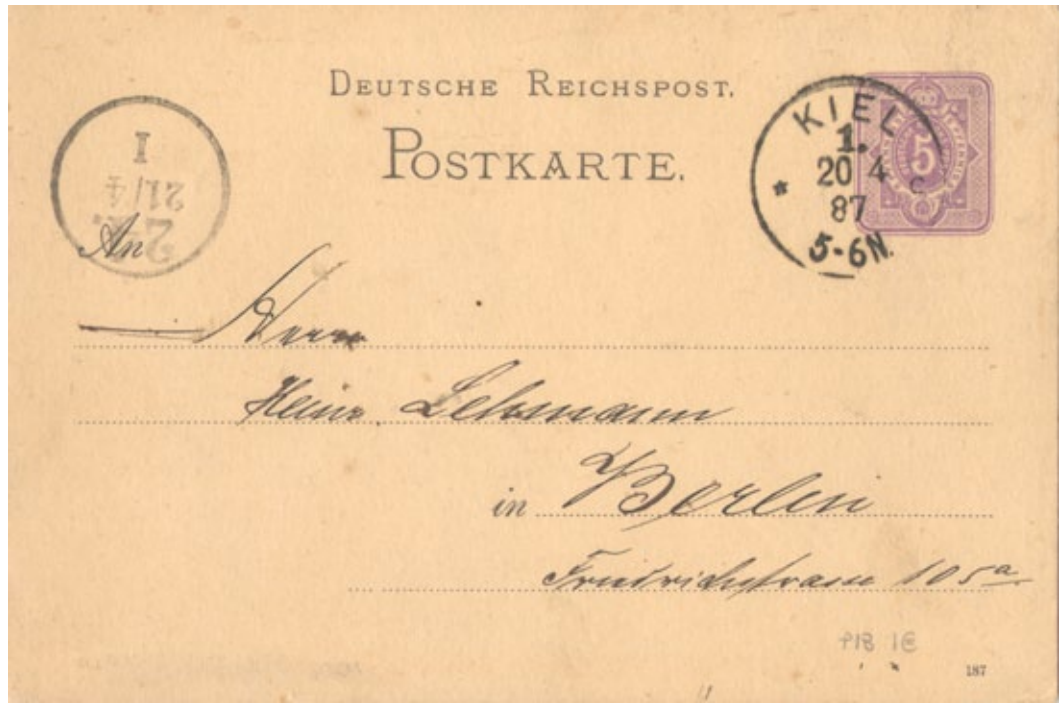 DEUTSCHE REICHSPOST.
POSTKARTE.
KIEL
1.
20 4 c
87
5-6N.
5
I
21/4
2
An
Herrn
Heinr. Lehmann
in Berlin
Friedrichstrasse 105a
P18 1E
187